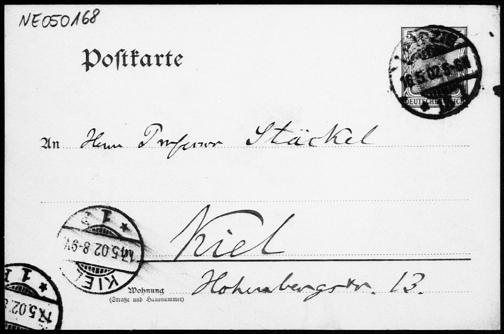 NE050168
Postkarte
16.5.02.
DEUTSCHES REICH
An Herrn Professor Stäckel
Kiel
Hohenbergstr. 13.
Wohnung
(Straße und Hausnummer)
KIEL
.5.02.8-9V.
* 1 *
17.5.02.8
* 1